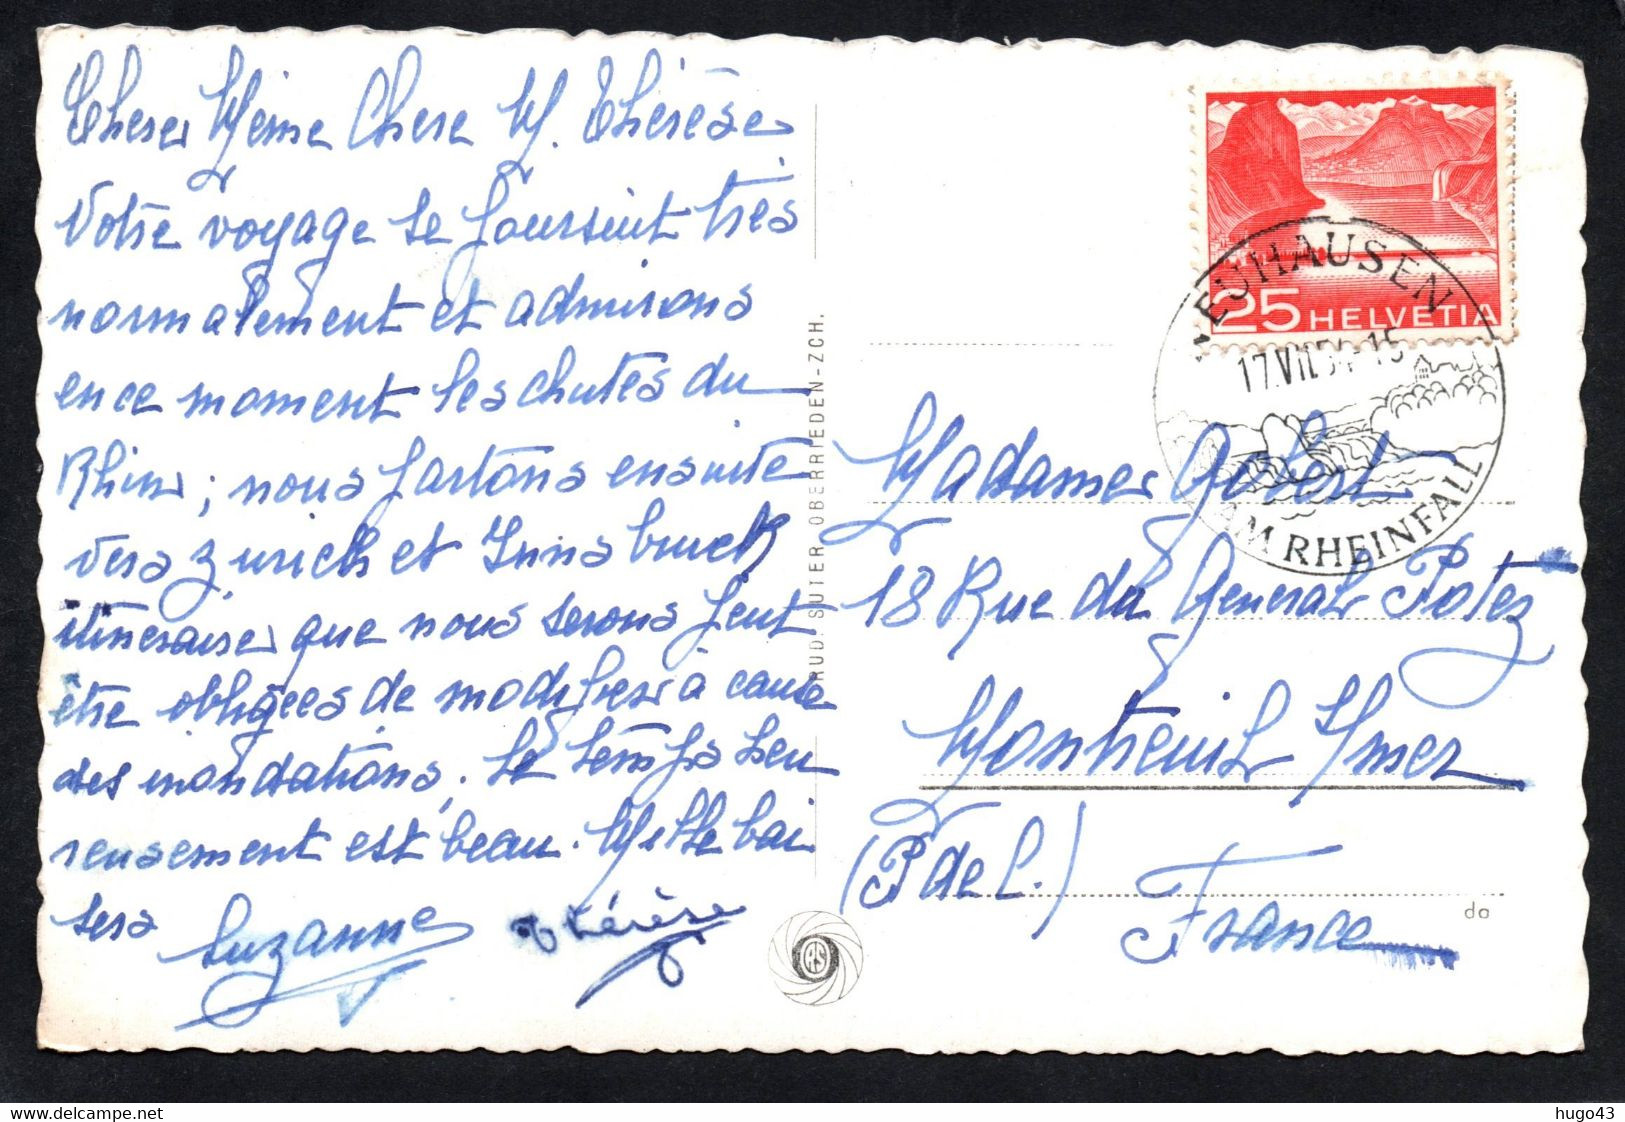 Chere Meme Chere M. Thérèse
Votre voyage se poursuit très
normalement et admirons
en ce moment les chutes du
Rhin ; nous partons ensuite
vers Zurich et Innsbruck
itineraire que nous serons peut
être obligées de modifier à cause
des inondations. Le temps heu
reusement est beau. Mille bai
sers
Suzanne Thérèse
RUDI SUTER OBERRIEDEN-ZCH.
25 HELVETIA
NEUHAUSEN
17.VII.54-15
AM RHEINFALL
Madame
18 Rue du General Potez
Montreuil s/mer
(P de C.)
France
do
delcampe.net
hugo43